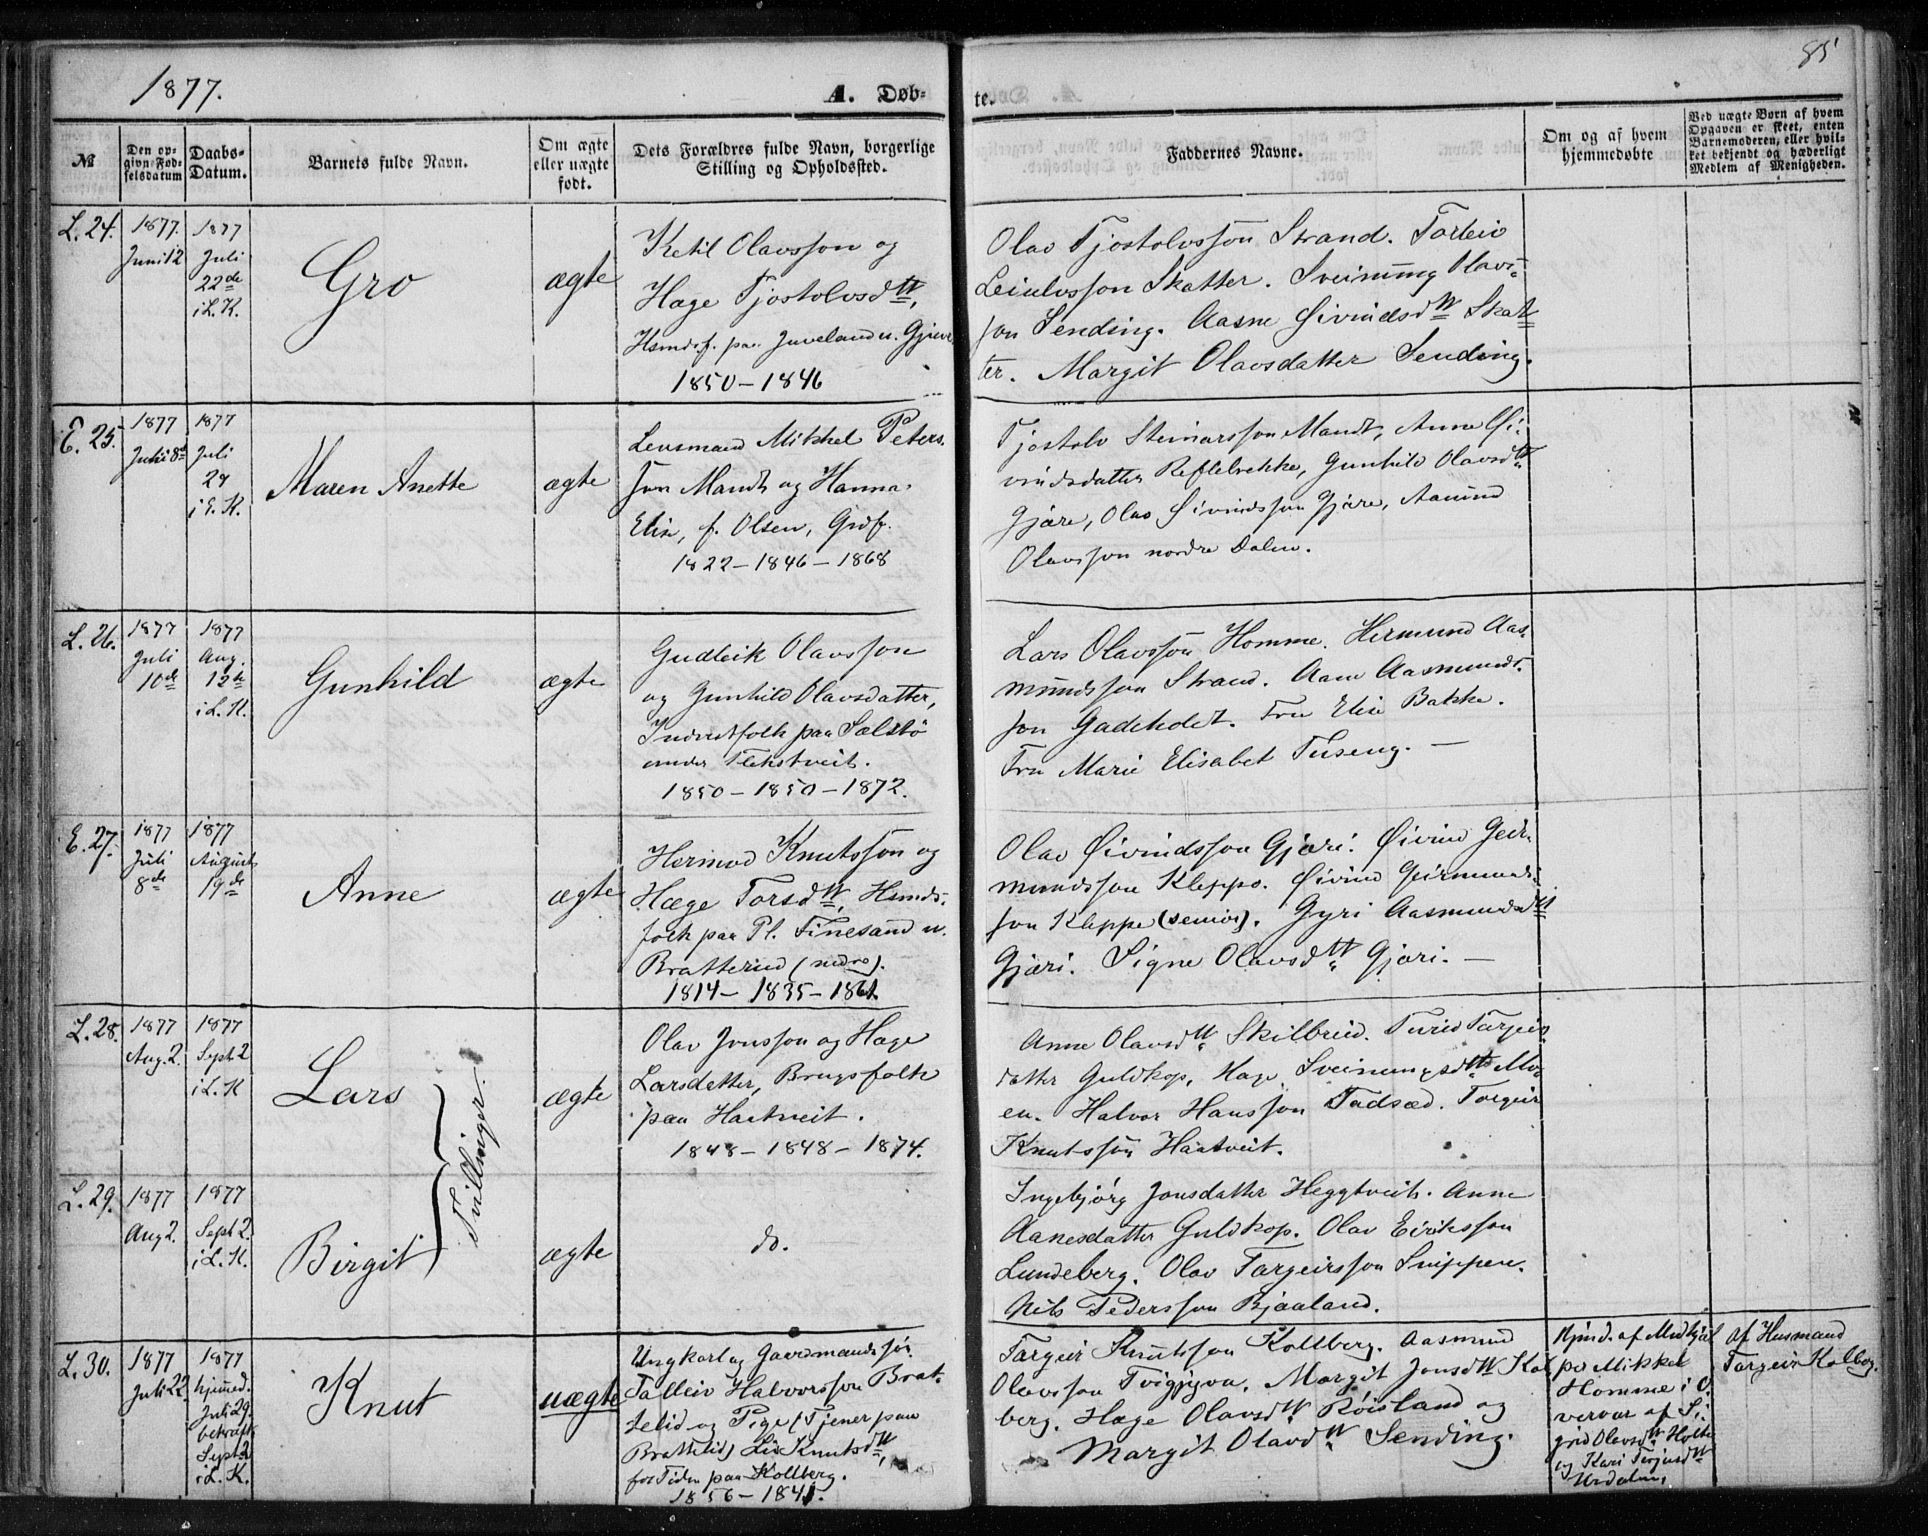 1877.
A. Døb-
te.
85
№
Den op-
givn Fød-
selsdatum
Daabs-
Datum.
Barnets fulde Navn.
Om ægte
eller uægte
født.
Dets Forældres fulde Navn, borgerlige
Stilling og Opholdssted.
Faddernes Navne.
Om og af hvem
hjemmedøbte
Ved uægte Børn af hvem
Opgaven er skeet, enten
Barnemoderen, eller hvil-
ket bekjendt og hæderligt
Medlem af Menigheden.
L. 24.
1877.
Juni 12
1877
Juli
22de
i L. K.
Gro
ægte
Ketil Olavsson og
Hæge Tjostolvsdtt,
Hsmdsf. paa Juveland u. Gjive
1850 - 1846
Olav Tjostolvsson Strand. Torleiv
Leiulvsson Skatter. Sveinung Olavs-
son Sending. Aasne Øivindsdtt Skat-
ter. Margit Olavsdatter Sending.
E. 25.
1877
Juli 8de
1877
Juli
29
i E. K.
Maren Anette
ægte
Lensmand Mikkel Peters.
son Mandt og Hanna
Elise, f. Olsen, Grdf.
1822 - 1846 - 1868
Tjostolv Steinarsson Mandt, Anne Øi-
vindsdatter Gunhild Olavsdtt
Gjære, Olav Øivindsson Gjære, Aanund
Olavsson nordre Dalen.
L. 26.
1877
Juli
10de
1877
Aug.
12te
i L. K.
Gunhild
ægte
Gudleik Olavsson
og Gunhild Olavsdatter,
Inderstfolk paa Sælstø
under Flekstveit.
1850 - 1850 - 1872.
Lars Olavsson Homme. Hermund Aas-
mundsson Strand. Aani Aasmunds-
son Gadeholt. Fru Elise Bakke.
Fru Marie Elisabet Tuseng. -
E. 27.
1877
Juli
8de
1877
August
19de
Anne
ægte
Hermod Knutsson og
Hæge Torsdtt, Hsmds-
folk paa Pl. Finesand u.
Bratterud (nedre).
1814 - 1835 - 1861.
Olav Øivindsson Gjæri. Øivind Geir-
mundsson Kleppo. Øivind Geirmunds-
son Kleppe (senior). Gyri Aasmundsdtt
Gjæri. Signe Olavsdtt Gjæri. -
L. 28.
1877
Aug. 2.
1877
Sept. 2
i L. K
Lars
Tvillinger.
ægte
Olav Jonsson og Hæge
Larsdatter, Brugsfolk
paa Haatveit.
1848 - 1848 - 1874.
Anne Olavsdtt Skilbreid. Turid Targeirs
datter Guldkop. Hæge Sveinungsdtt Mo-
en. Halvor Hansson Fadsæd. Torgeir
Knutsson Haatveit.
L. 29.
1877
Aug 2.
1877
Sept 2.
i L. K.
Birgit
ægte
do.
Ingebjørg Jonsdatter Heggtveit. Anne
Aanesdatter Guldkop. Olav Eiriksson
Lundeberg. Olav Targeirsson Snippen.
Nils Pedersson Bjaaland.
L. 30.
1877
Juli 22.
1877
hjemmed.
Juli 29.
bekræft.
Sept 2
i L. K.
Knut
uægte
Ungkarl og Gaardmandssøn
Talleiv Halvorsson Brat-
telid og Pige (Tjener paa
Brattelid) Liv Knutsdtt,
for Tiden paa Kolberg.
1856 - 1841.
Targeir Knutsson Kolberg. Aasmund
Olavsson Tvigyva. Margit Jonsdtt Kol
berg. Hæge Olavsdtt Røisland og
Margit Olavsdtt Sending.
Mikkel
Homme i O-
vervær af Si-
grid Olavsdtt Holte
og Kari Terjesdtt
Urdalen.
af Husmand
Targeir Kolberg.